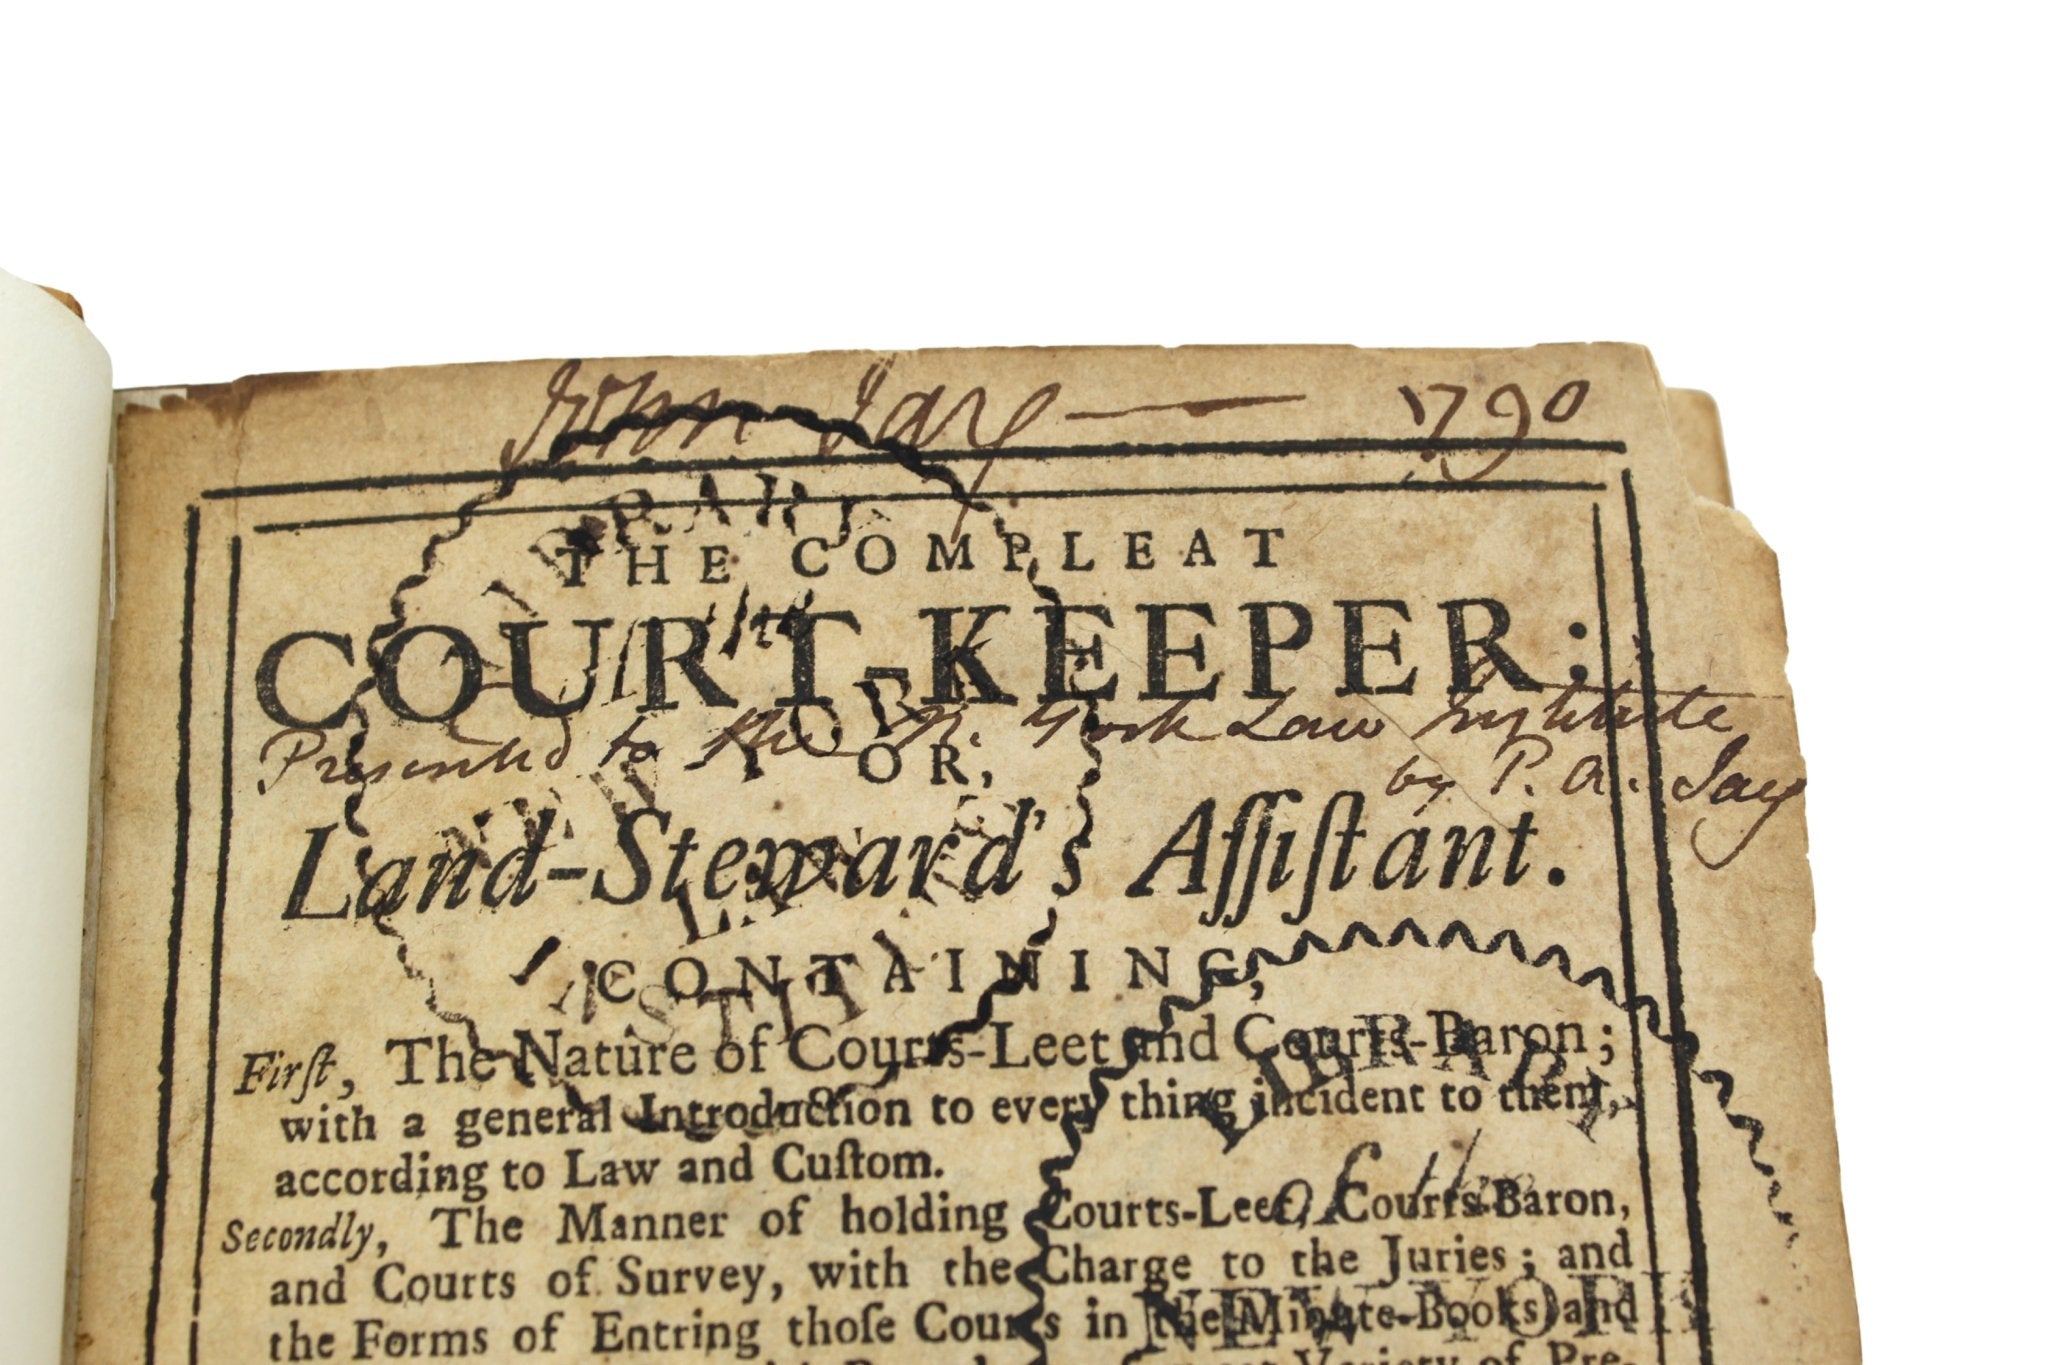 John Jay — 1790
THE COMPLEAT
COURT-KEEPER:
Presented to the N. York Law Institute
by P. A. Jay
OR,
Land-Steward's Aſſiſtant.
CONTAINING,
Firſt, The Nature of Courts-Leet and Courts-Baron;
with a general Introduction to every thing incident to them,
according to Law and Cuſtom.
Secondly, The Manner of holding Courts-Leet, Courts-Baron,
and Courts of Survey, with the Charge to the Juries; and
the Forms of Entring thoſe Courts in the Minute-Books and
Variety of Pre-
LIBRARY
of the
NEW YORK
LAW
INSTITUTE
LIBRARY
of the
NEW YORK